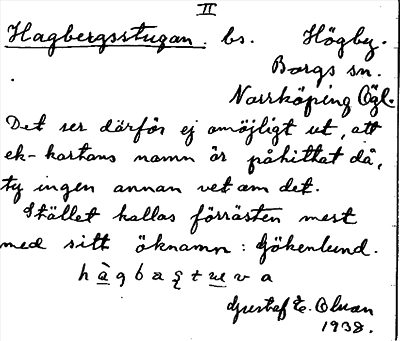 II
Hagbergsstugan. bs. Högby.
Borgs sn.
Norrköping Ögl.
Det ser därför ej omöjligt ut, att
ek-kartans namn är påhittat då,
ty ingen annan vet om det.
Stället kallas förrästen mest
med sitt öknamn: Gökenlund.
Gustaf E. Olson
1938.